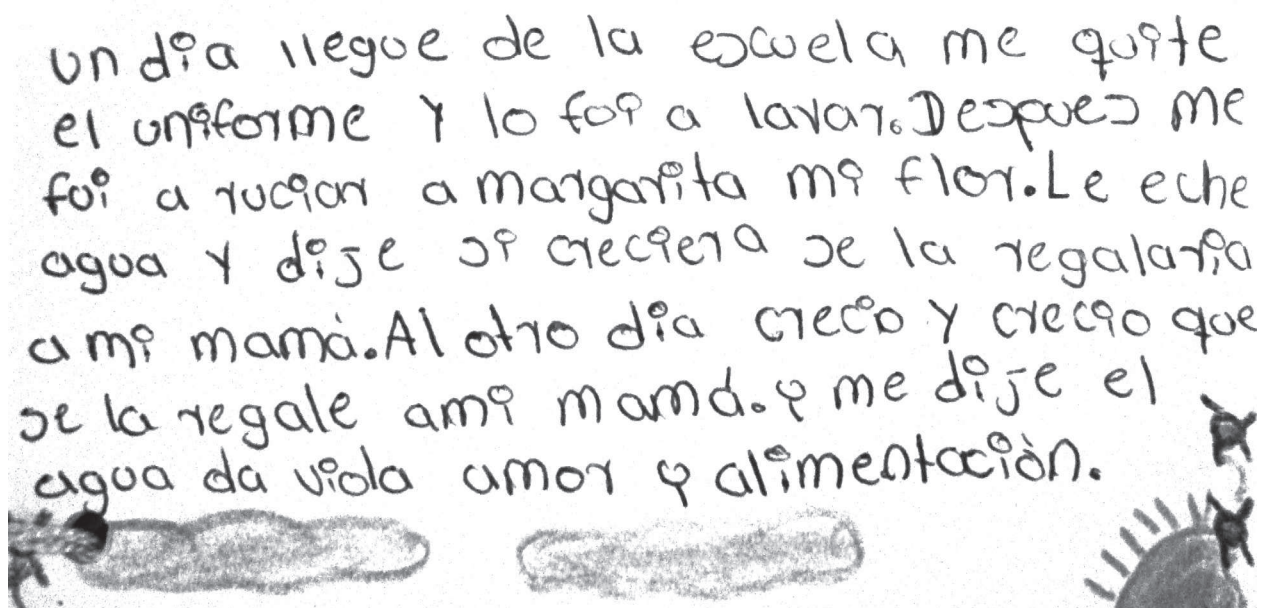 un día llegue de la escuela me quite
el uniforme y lo foi a lavar. Despues me
foi a ruciar a margarita mi flor. Le eche
agua y dije si creciera se la regalaria
a mi mamá. Al otro dia crecio y crecio que
se la regale ami mamá. y me dije el
agua da vida amor y alimentaciòn.